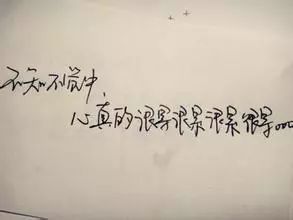 不知不觉中,
心真的很累很累很累很累。。。